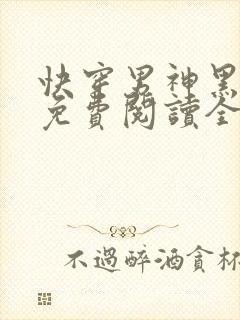 快穿男神黑
免費閱讀全
不過醉酒貪杯